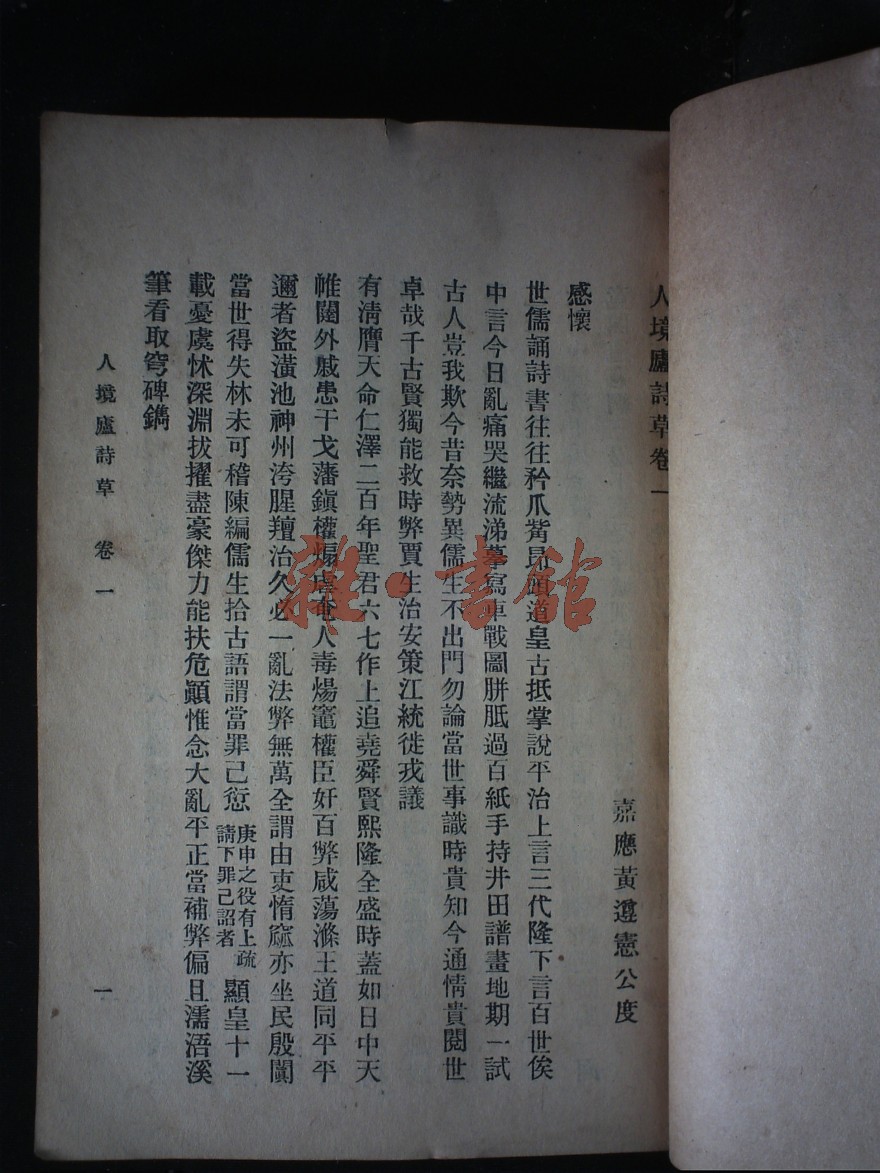 人境廬詩草卷一
嘉應黃遵憲公度
感懷
世儒誦詩書往往矜爪觜昂頭道皇古抵掌說平治上言三代隆下言百世俟
中言今日亂痛哭繼流涕摹寫車戰圖胼胝過百紙手持井田譜畫地期一試
古人豈我欺今昔奈勢異儒生不出門勿論當世事識時貴知今通情貴閱世
卓哉千古賢獨能救時弊賈生治安策江統徙戎議
有清膺天命仁澤二百年聖君六七作上追堯舜賢熙隆全盛時蓋如日中天
帷闥外戚患干戈藩鎮權煽虐奄人毒煬竈權臣奸百弊咸蕩滌王道同平平
邇者盜潢池神州洿腥羶治久必一亂法弊無萬全謂由吏惰窳亦坐民殷闐
當世得失林未可稽陳編儒生拾古語謂當罪己愆
庚申之役有上疏
請下罪己詔者
顯皇十一
載憂虞怵深淵拔擢盡豪傑力能扶危顛惟念大亂平正當補弊偏且濡浯溪
筆看取穹碑鐫
人境廬詩草 卷一
一
雜·書館